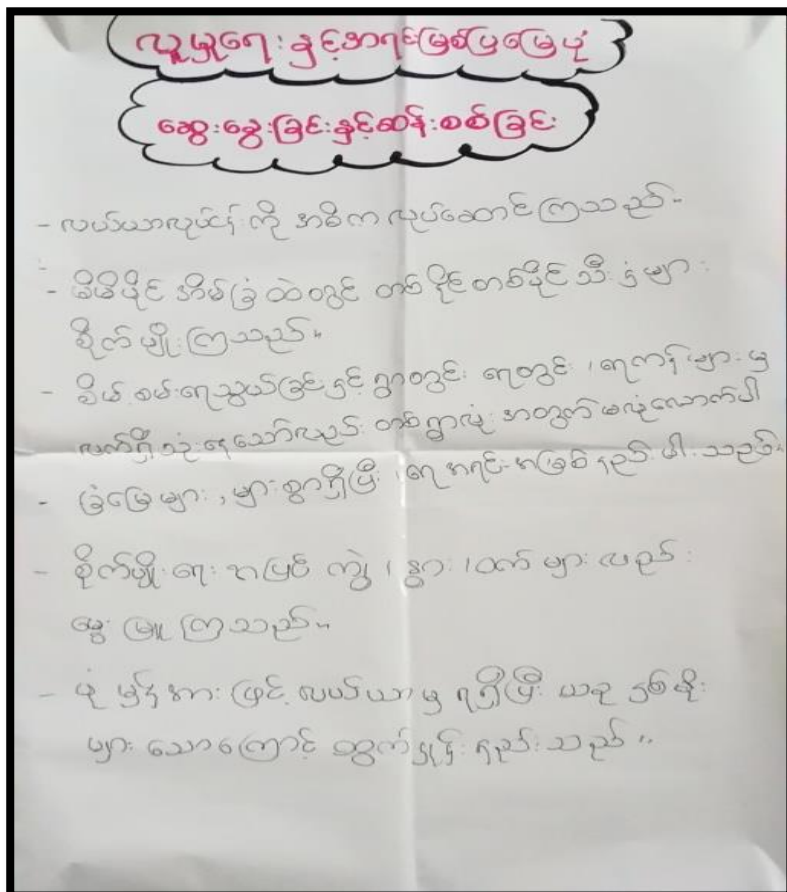 လူမှုရေးနှင့်အရင်းမြစ်ပြမြေပုံ
ဆွေးနွေးခြင်းနှင့်ဆန်းစစ်ခြင်း
- လယ်ယာလုပ်ငန်းကို အဓိကလုပ်ဆောင်ကြသည်။
- မိမိပိုင် အိမ်ခြံထဲတွင် တစ်ပိုင်တစ်ပိုင်သီးနှံများ
စိုက်ပျိုးကြသည်။
- စိမ့်စမ်းရေသွယ်ခြင်းနှင့် ရွာတွင်း ရေတွင်း ၊ရေကန်များမှ
လက်ရှိသုံးနေသော်လည်း တစ်ရွာလုံးအတွက်မလုံလောက်ပါ
- ခြံမြေများ , များစွာရှိပြီး ၊ရေအရင်းအမြစ်နည်းပါးသည်။
- စိုက်ပျိုးရေးအပြင် ကျွဲ ၊ နွား ၊ဝက်များလည်း
မွေးမြူကြသည်။
- ပုံမှန်အားဖြင့် လယ်ယာမှ ရရှိပြီး ယခုနှစ်မိုး
များသောကြောင့် ထွက်နှုန်းနည်းသည်။